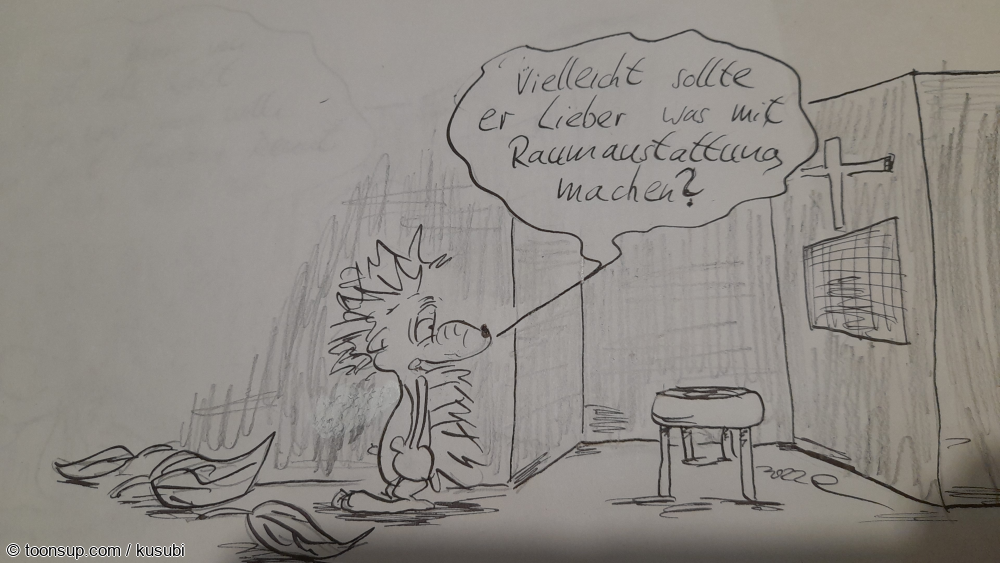 Vielleicht sollte
er Lieber was mit
Raumaustattung
machen?
2022
© toonsup.com / kusubi